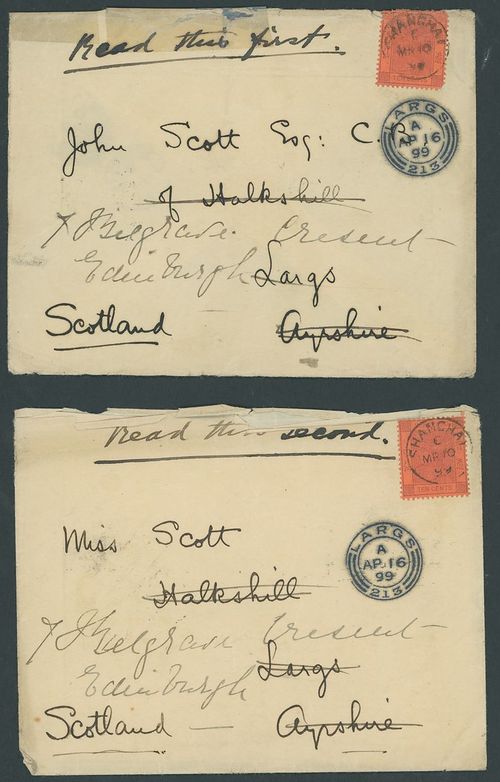 Read this first.
SHANGHAI
C
MR 10
99
TEN CENTS
LARGS
A
AP 16
99
213
John Scott Esq: C.B.
of Halkshill
7 Belgrave Cresent
Edinburgh Largs
Scotland Ayrshire
Read this second.
SHANGHAI
C
MR 10
99
TEN CENTS
LARGS
A
AP 16
99
213
Miss Scott
Halkshill
7 Belgrave Cresent
Largs
Edinburgh
Scotland — Ayrshire